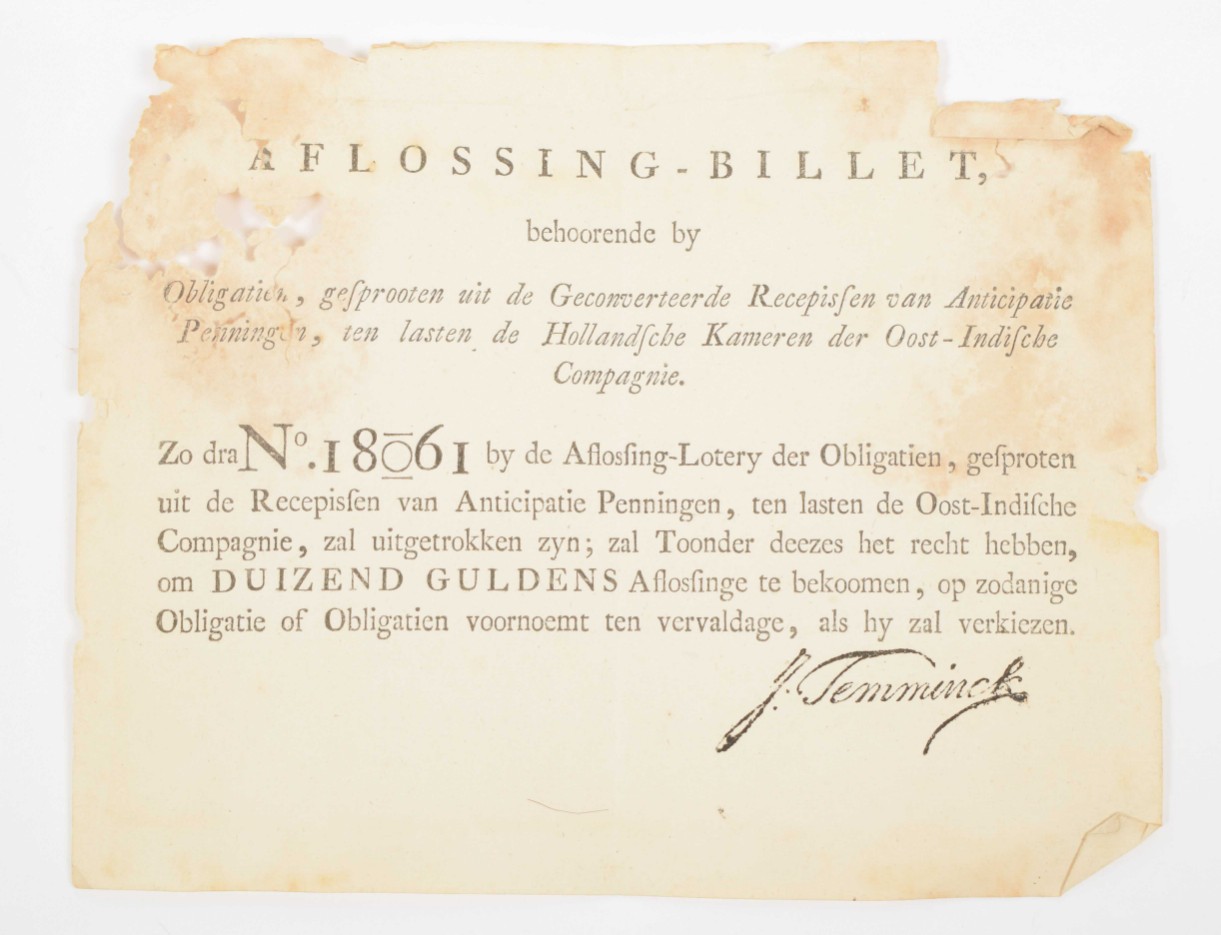 AFLOSSING-BILLET,
behoorende by
Obligatien, geſprooten uit de Geconverteerde Recepiſſen van Anticipatie
Penningen, ten lasten de Hollandſche Kameren der Oost-Indiſche
Compagnie.
Zo dra No. 18061 by de Aflosſing-Lotery der Obligatien, geſproten
uit de Recepisſen van Anticipatie Penningen, ten lasten de Oost-Indiſche
Compagnie, zal uitgetrokken zyn; zal Toonder deezes het recht hebben,
om DUIZEND GULDENS Aflosſinge te bekoomen, op zodanige
Obligatie of Obligatien voornoemt ten vervaldage, als hy zal verkiezen.
J. Temminck